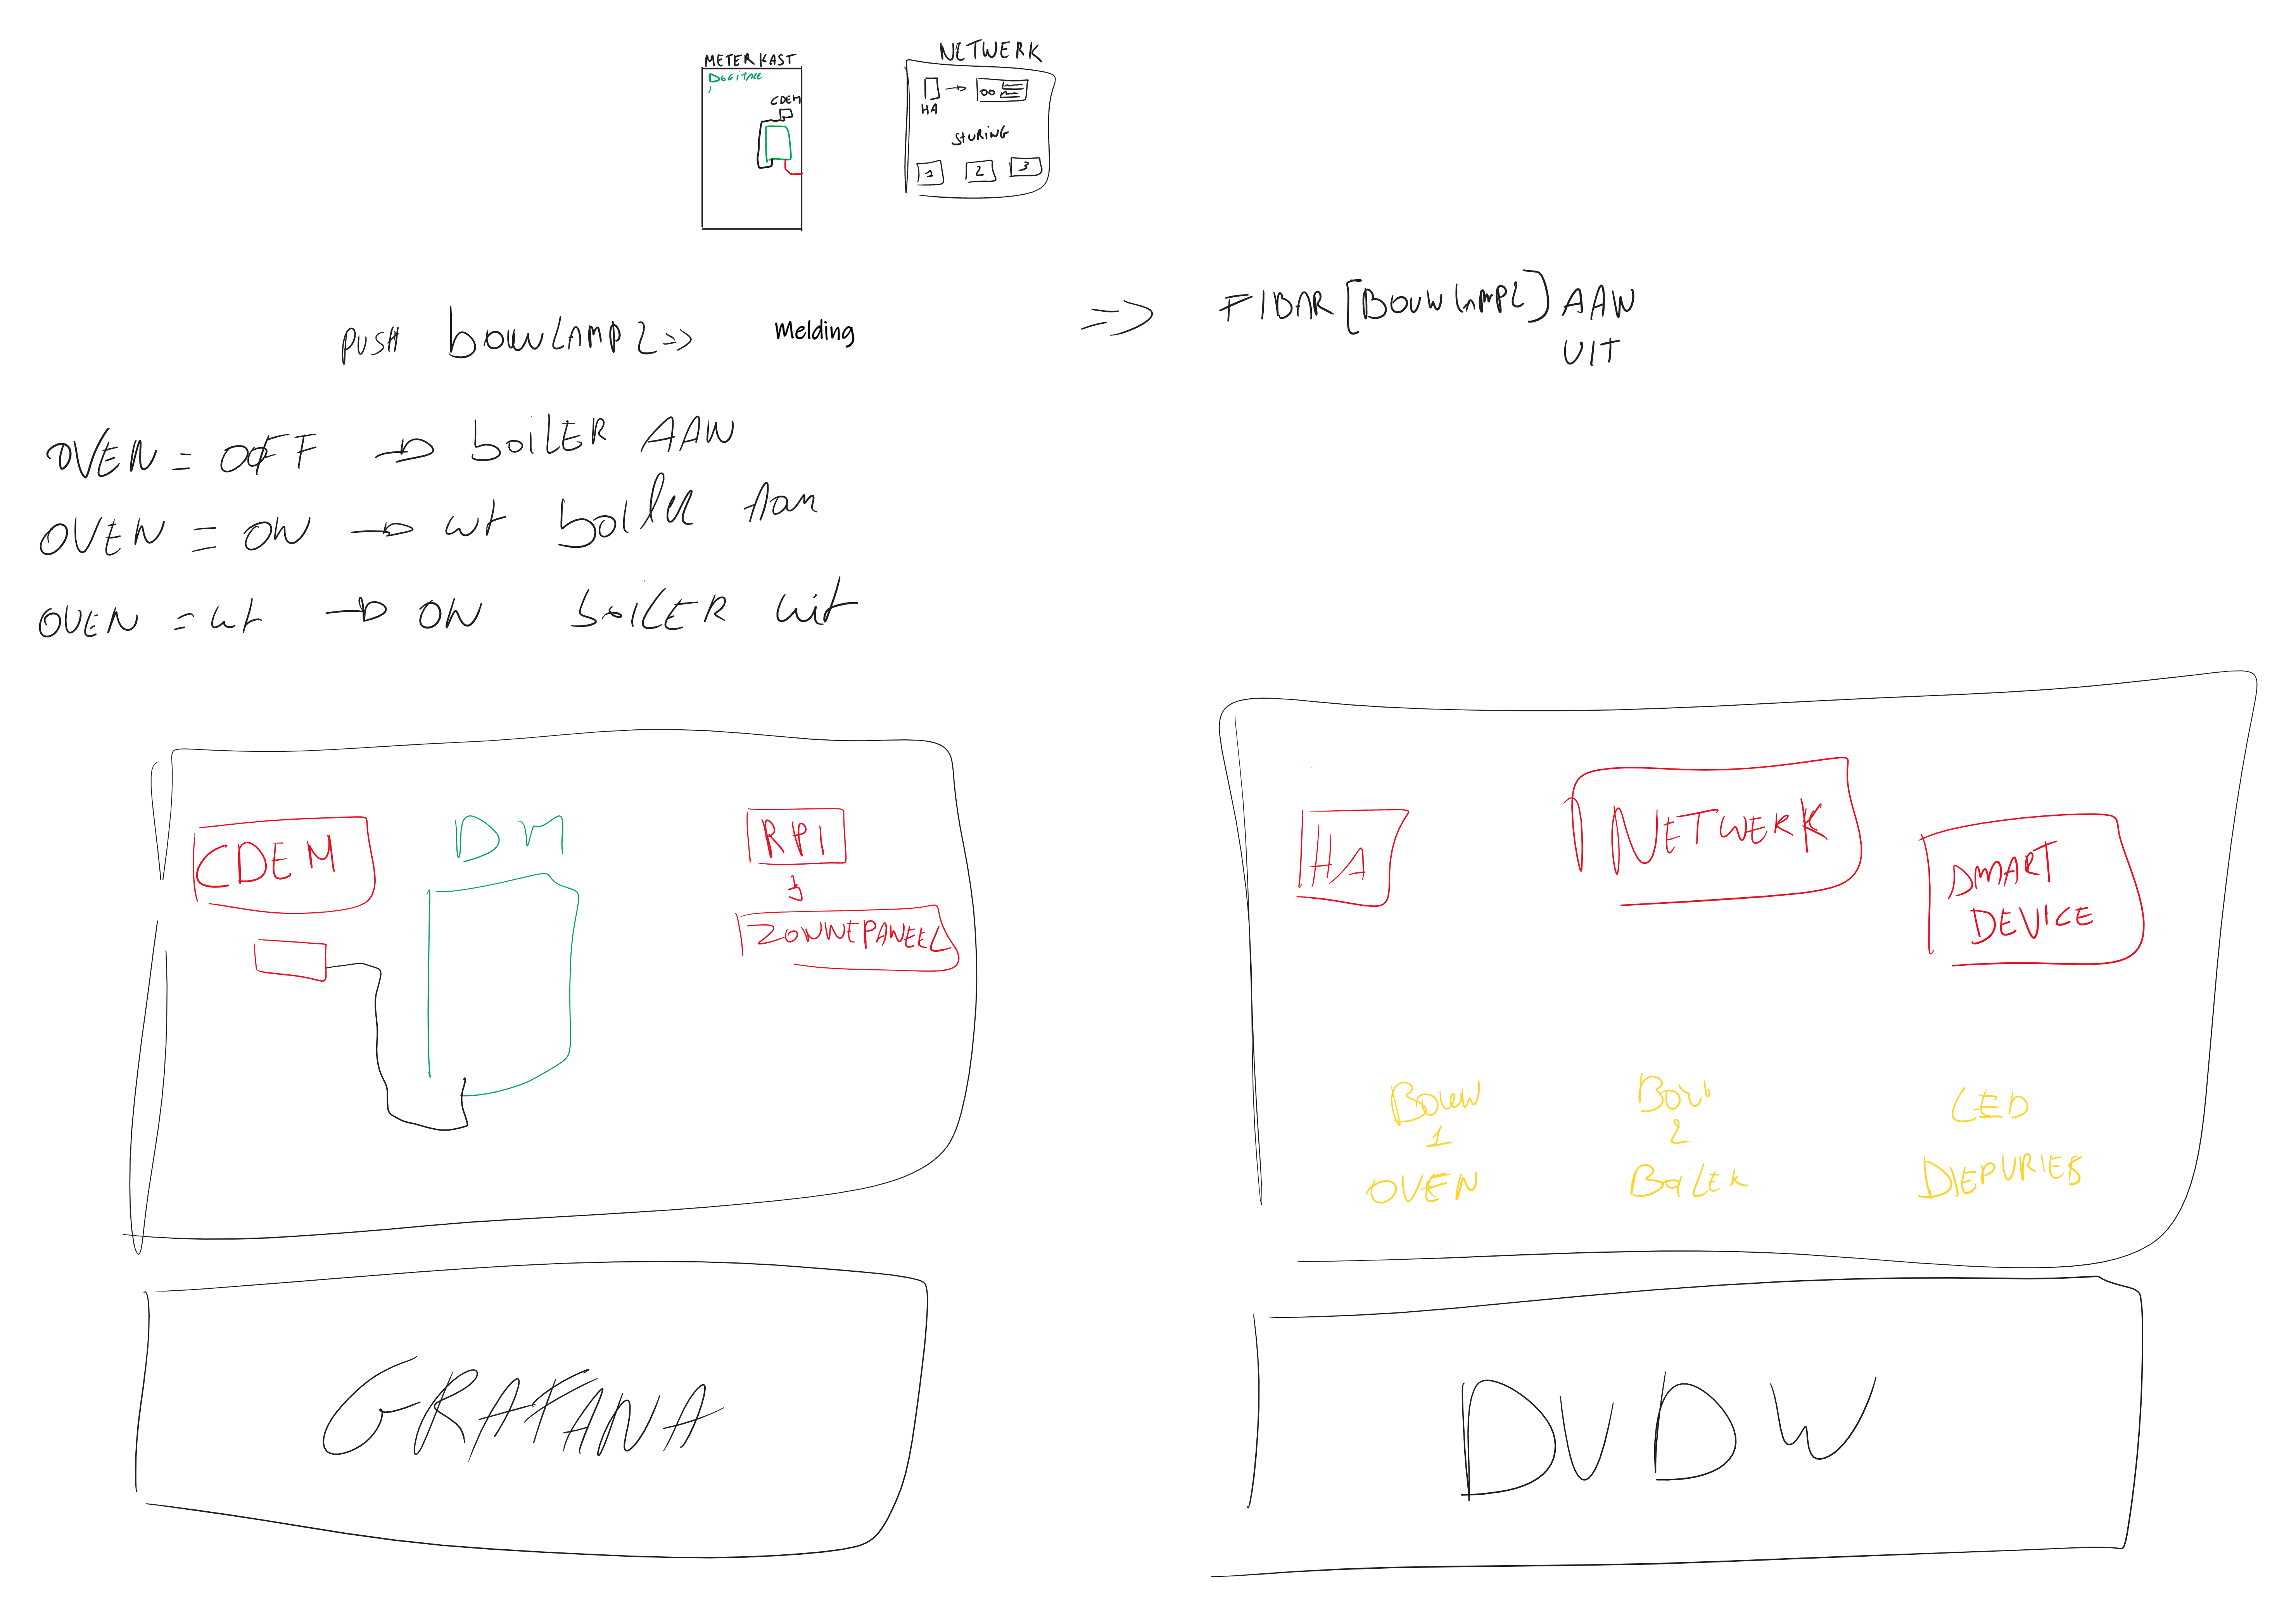 METERKAST
DEGITALE
CDEM
NETWERK
HA
STURING
1 2 3
PUSH BOUWLAMP 2 => Melding => FIBAR [BOUWLAMP2] AAN
UIT
OVEN = OFF → BOILER AAN
OVEN = ON → wt boiler Aan
OVEN = wt → ON BOILER uit
CDEM
DM
RPI
ZONNEPANEEL
HA
NETWERK
SMART
DEVICE
Bouw
1
OVEN
Bou
2
BoiLER
LED
DIEPVRIES
GRAFANA
DVDW